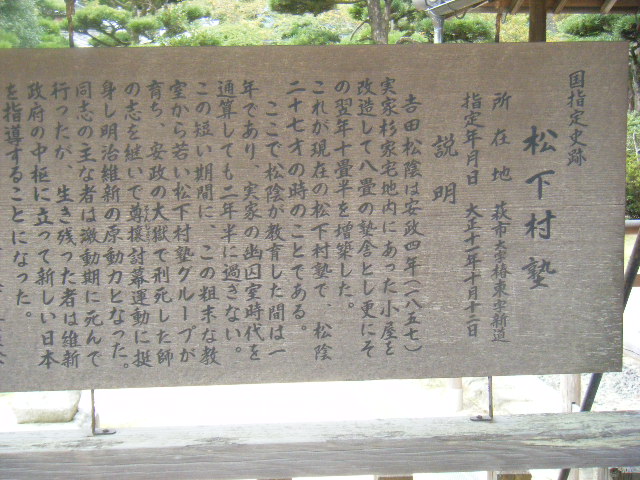 国指定史跡
松下村塾
所在地 萩市大字椿東字新道
指定年月日 大正十一年十月十二日
説明
吉田松陰は安政四年(一八五七)
実家杉家宅地内にあった小屋を
改造して八畳の塾舎とし更にそ
の翌年十畳半を増築した。
これが現在の松下村塾で、松陰
二十七才の時のことである。
ここで松陰が教育した間は一
年であり、実家の幽囚室時代を
通算しても二年半に過ぎない。
この短い期間に、この粗末な教
室から若い松下村塾グループが
育ち、安政の大獄で刑死した師
の志を継いで尊攘討幕運動に挺
身し明治維新の原動力となった。
同志の主な者は激動期に死んで
行ったが、生き残った者は維新
政府の中枢に立って新しい日本
を指導することになった。